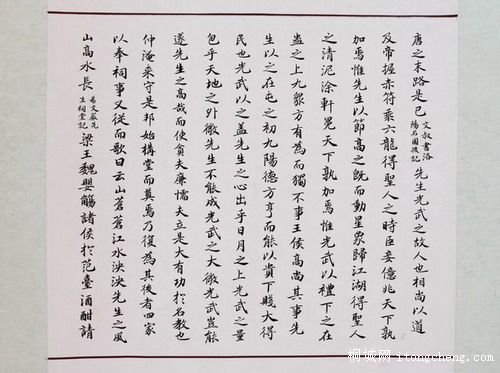 唐之末路是已文叔書洛陽名園後記先生光武之故人也相尚以道
及帝握赤符乘六龍得聖人之時臣妾億兆天下孰
加焉惟先生以節高之既而動星象歸江湖得聖人
之清泥涂軒冕天下孰加焉惟光武以禮下之在
蠱之上九眾方有為而獨不事王侯高尚其事先
生以之在屯之初九陽德方亨而能以貴下賤大得
民也光武以之蓋先生之心出乎日月之上光武之量
包乎天地之外微先生不能成光武之大微光武豈能
遂先生之高哉而使貪夫廉懦夫立是大有功於名教也
仲淹來守是邦始構堂而奠焉乃復為其後者四家
以奉祠事又從而歌曰云山蒼蒼江水泱泱先生之風
山高水長希文嚴先生祠堂記梁王魏嬰觴諸侯於范臺酒酣請
桐城网 itongcheng.com